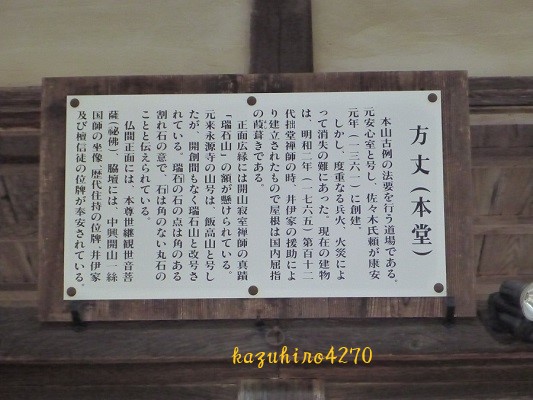 方丈（本堂）
本山古例の法要を行う道場である。
元安心室と号し、佐々木氏頼が康安
元年（一三六一）に創建。
しかし、度重なる兵火、火災によ
って消失の難にあった。現在の建物
は、明和二年（一七六五）第百十二
代拙堂禅師の時、井伊家の援助によ
り建立されたもので屋根は国内屈指
の葭葺きである。
正面広縁には開山寂室禅師の真蹟
「瑞石山」の額が懸けられている。
元来永源寺の山号は、飯高山と号し
たが、開創間もなく瑞石山と改号さ
れている。瑞石の石の点は角のある
割れ石の意で、石は角のない丸石の
ことと伝えられている。
仏間正面には、本尊世継観世音菩
薩（祕佛）、脇壇には、中興開山一絲
国師の坐像、歴代住持の位牌、井伊家
及び檀信徒の位牌が奉安されている。
kazuhiro4270